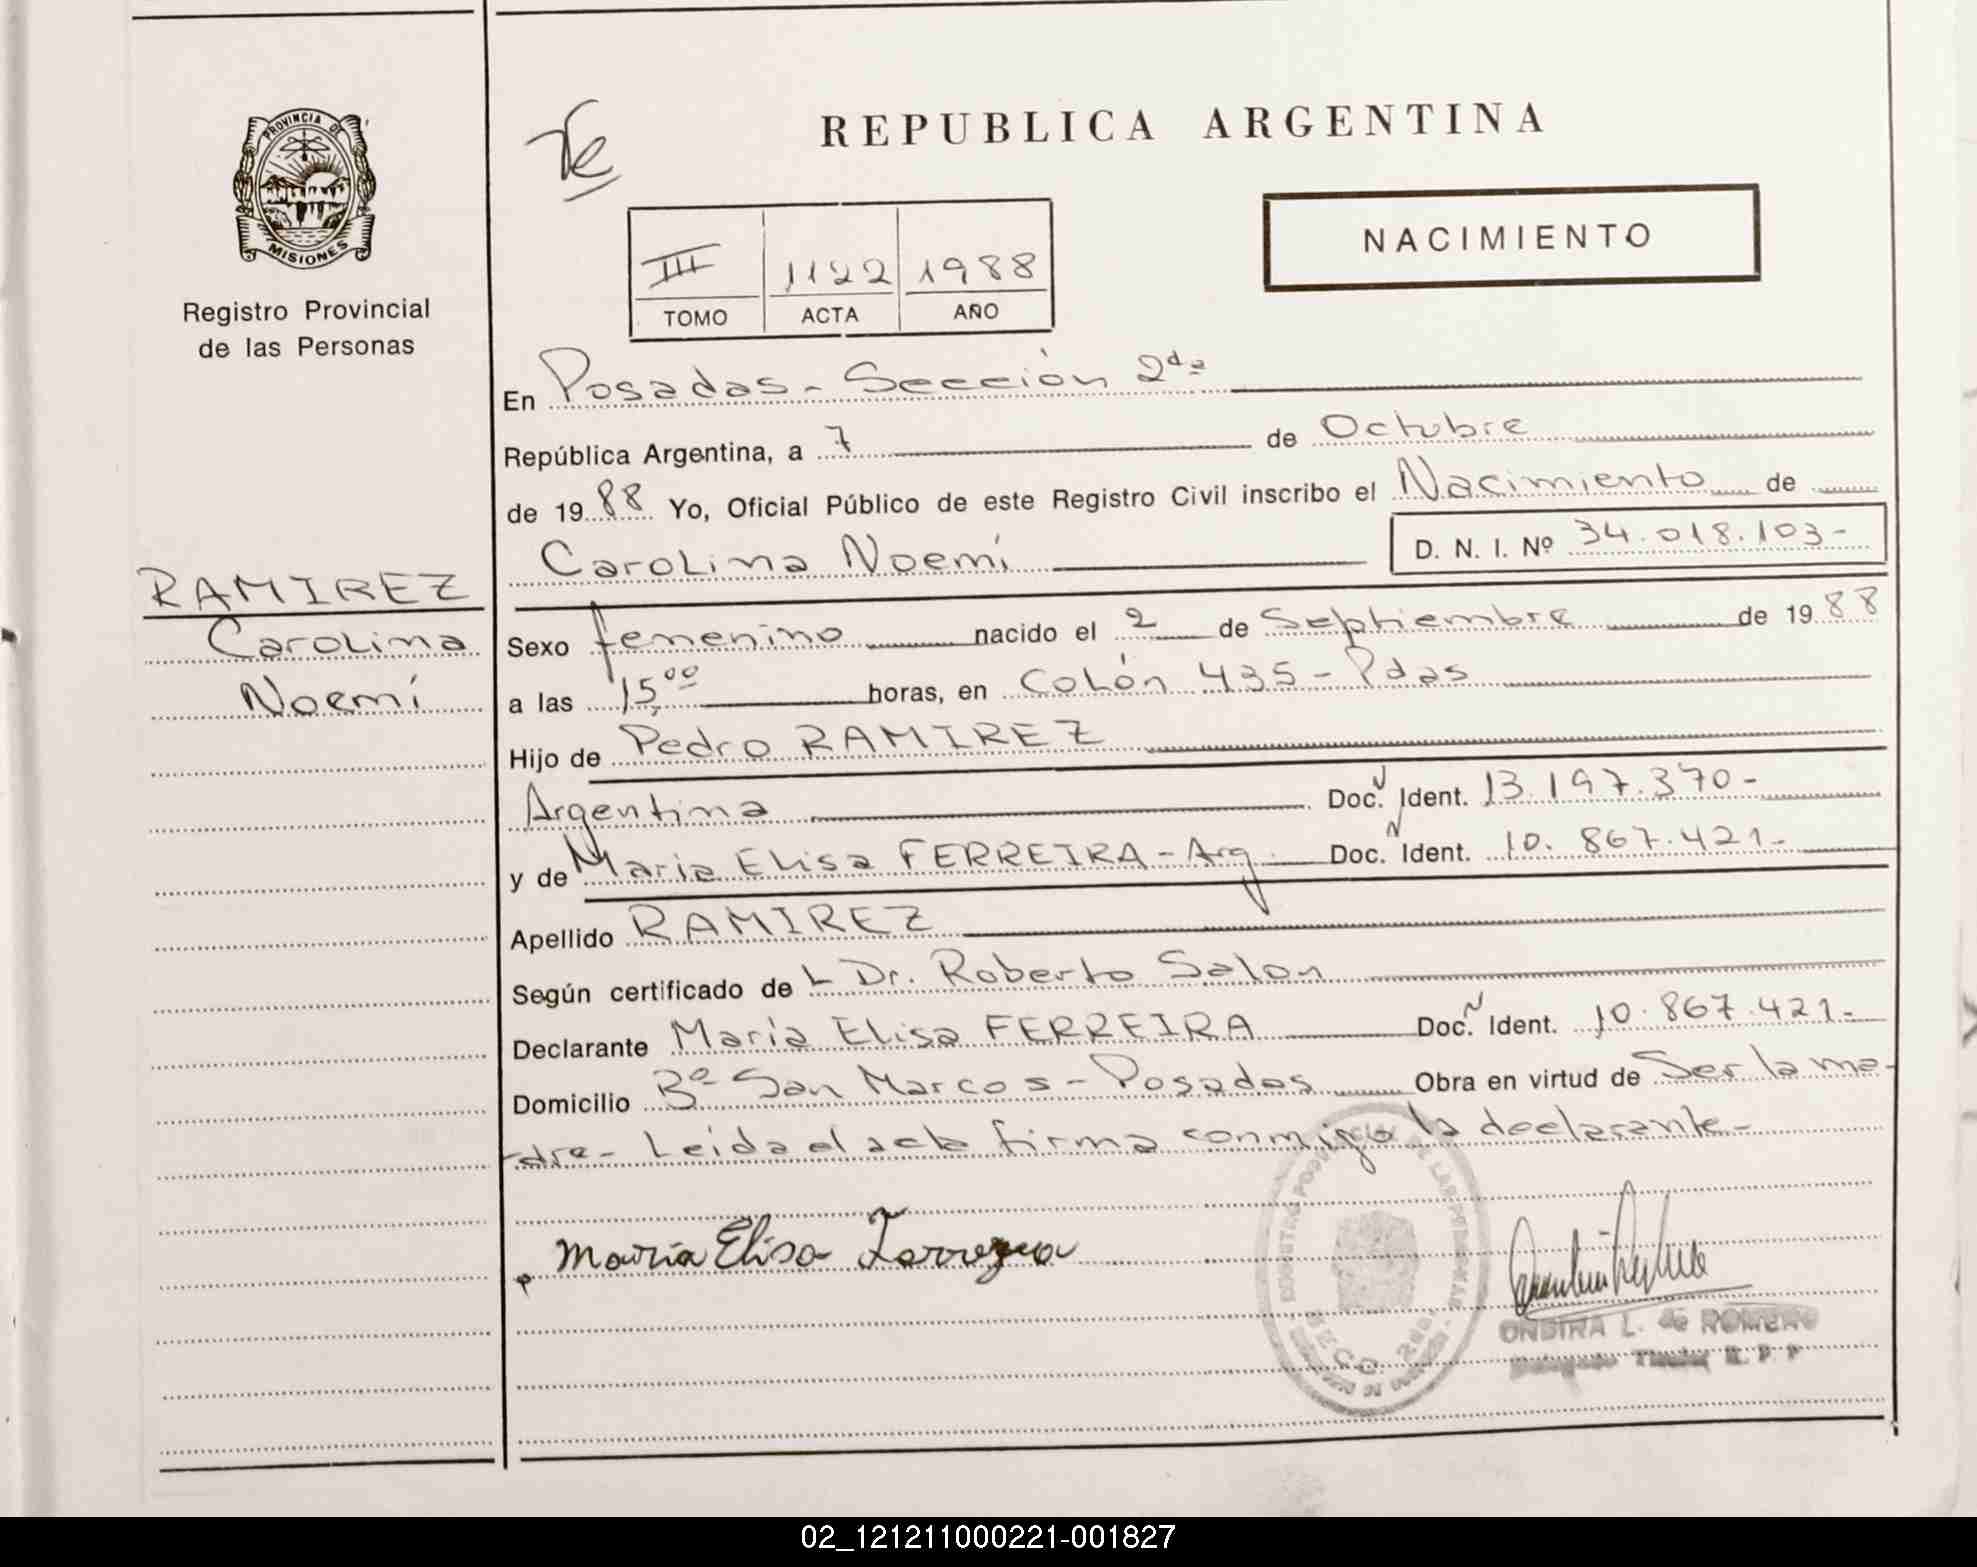 REPUBLICA ARGENTINA
PROVINCIA DE
MISIONES
Registro Provincial
de las Personas
NACIMIENTO
III 1122 1988
TOMO ACTA AÑO
En Posadas - Sección 2da
República Argentina, a 7 de Octubre
de 1988 Yo, Oficial Público de este Registro Civil inscribo el Nacimiento de
Carolina Noemí D. N. I. Nº 34.018.103-
RAMIREZ
Carolina
Noemí
Sexo femenino nacido el 2 de Septiembre de 1988
a las 15,00 horas, en Colón 435 - Pdas
Hijo de Pedro RAMIREZ
Argentina Doc. Ident. 13.197.370-
y de Maria Elisa FERREIRA - Arg. Doc. Ident. 10.867.421-
Apellido RAMIREZ
Según certificado de L Dr. Roberto Salon
Declarante María Elisa FERREIRA Doc. Ident. 10.867.421-
Domicilio Bº San Marcos - Posadas Obra en virtud de Ser la ma-
dre - Leida el acta firma conmigo la declarante -
Maria Elisa
ONDINA L. de ROMERO
Delegado Titular R. P. P
02_121211000221-001827